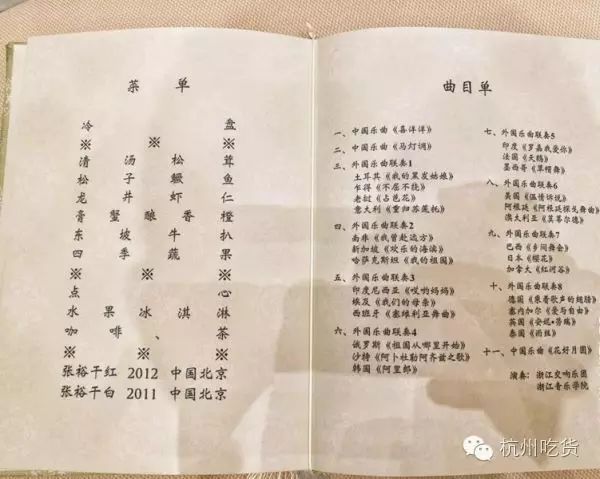 菜 单
冷 盘
※ ※ ※
清 汤 松 茸
松 子 鳜 鱼
龙 井 虾 仁
膏 蟹 酿 香 橙
东 坡 牛 扒
四 季 蔬 果
※ ※ ※
点 心
水 果 冰 淇 淋
咖 啡 、 茶
※ ※ ※
张裕干红 2012 中国北京
张裕干白 2011 中国北京
曲目单
一、中国乐曲《喜洋洋》
二、中国乐曲《马灯调》
三、外国乐曲联奏1
土耳其《我的黑发姑娘》
乍得《不屈不挠》
老挝《占芭花》
意大利《重归苏莲托》
四、外国乐曲联奏2
南非《我曾赴远方》
新加坡《欢乐的海滨》
哈萨克斯坦《我的祖国》
五、外国乐曲联奏3
印度尼西亚《哎哟妈妈》
埃及《我们的母亲》
西班牙《塞维利亚舞曲》
六、外国乐曲联奏4
俄罗斯《祖国从哪里开始》
沙特《阿卜杜勒阿齐兹之歌》
韩国《阿里郎》
七、外国乐曲联奏5
印度《罗嘉我爱你》
法国《天鹅》
墨西哥《草帽舞》
八、外国乐曲联奏6
美国《温情诉说》
阿根廷《阿根廷探戈舞曲》
澳大利亚《莫蒂尔德》
九、外国乐曲联奏7
巴西《乡间舞会》
日本《樱花》
加拿大《红河谷》
十、外国乐曲联奏8
德国《乘着歌声的翅膀》
塞内加尔《爱与自由》
英国《安妮•劳瑞》
泰国《雨丝》
十一、中国乐曲《花好月圆》
演奏:浙江交响乐团
浙江音乐学院
杭州吃货